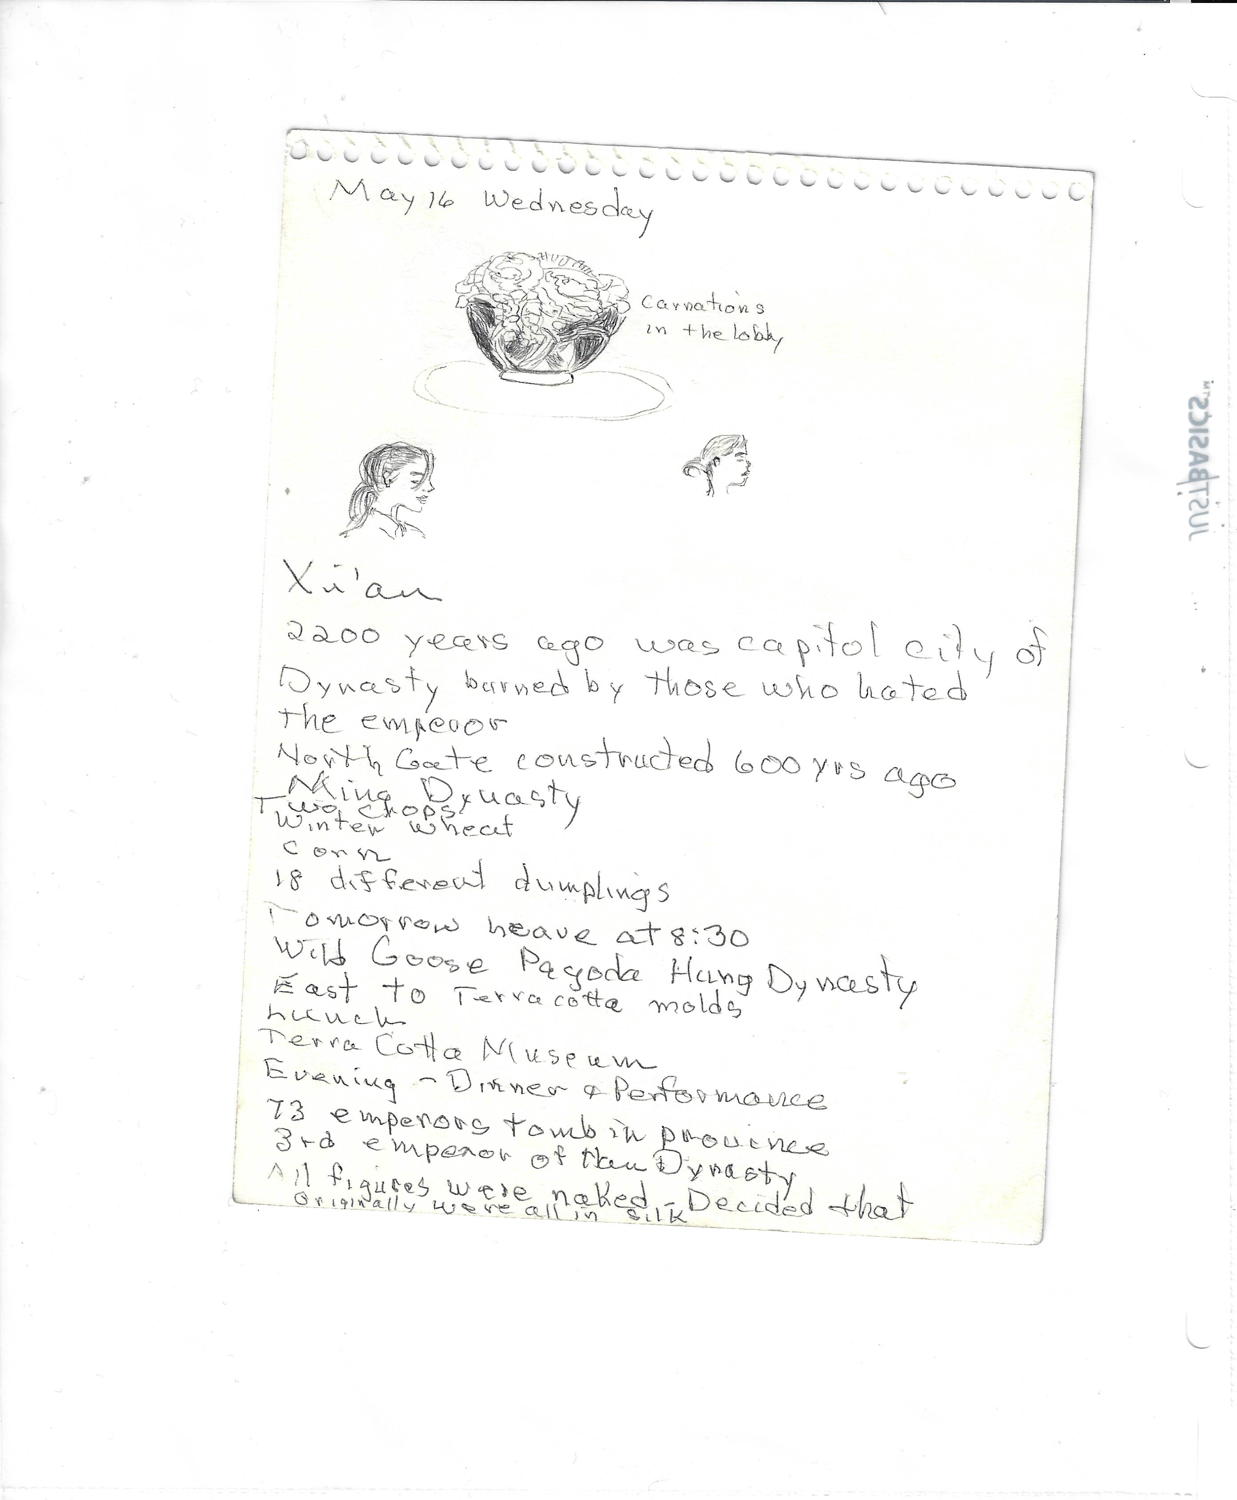 May 16 Wednesday
Carnations
in the lobby
Xi'an
2200 years ago was capitol city of
Dynasty burned by those who hated
the emperor
North Gate constructed 600 yrs ago
Ming Dynasty
Two crops
Winter wheat
Corn
18 different dumplings
Tomorrow leave at 8:30
Wild Goose Pagoda Hang Dynasty
East to Terracotta molds
Lunch
Terra Cotta Museum
Evening - Dinner & Performance
73 emperors tomb in province
3rd emperor of Han Dynasty
All figures were naked - Decided that
Originally were all in silk
JUSTBASICS™